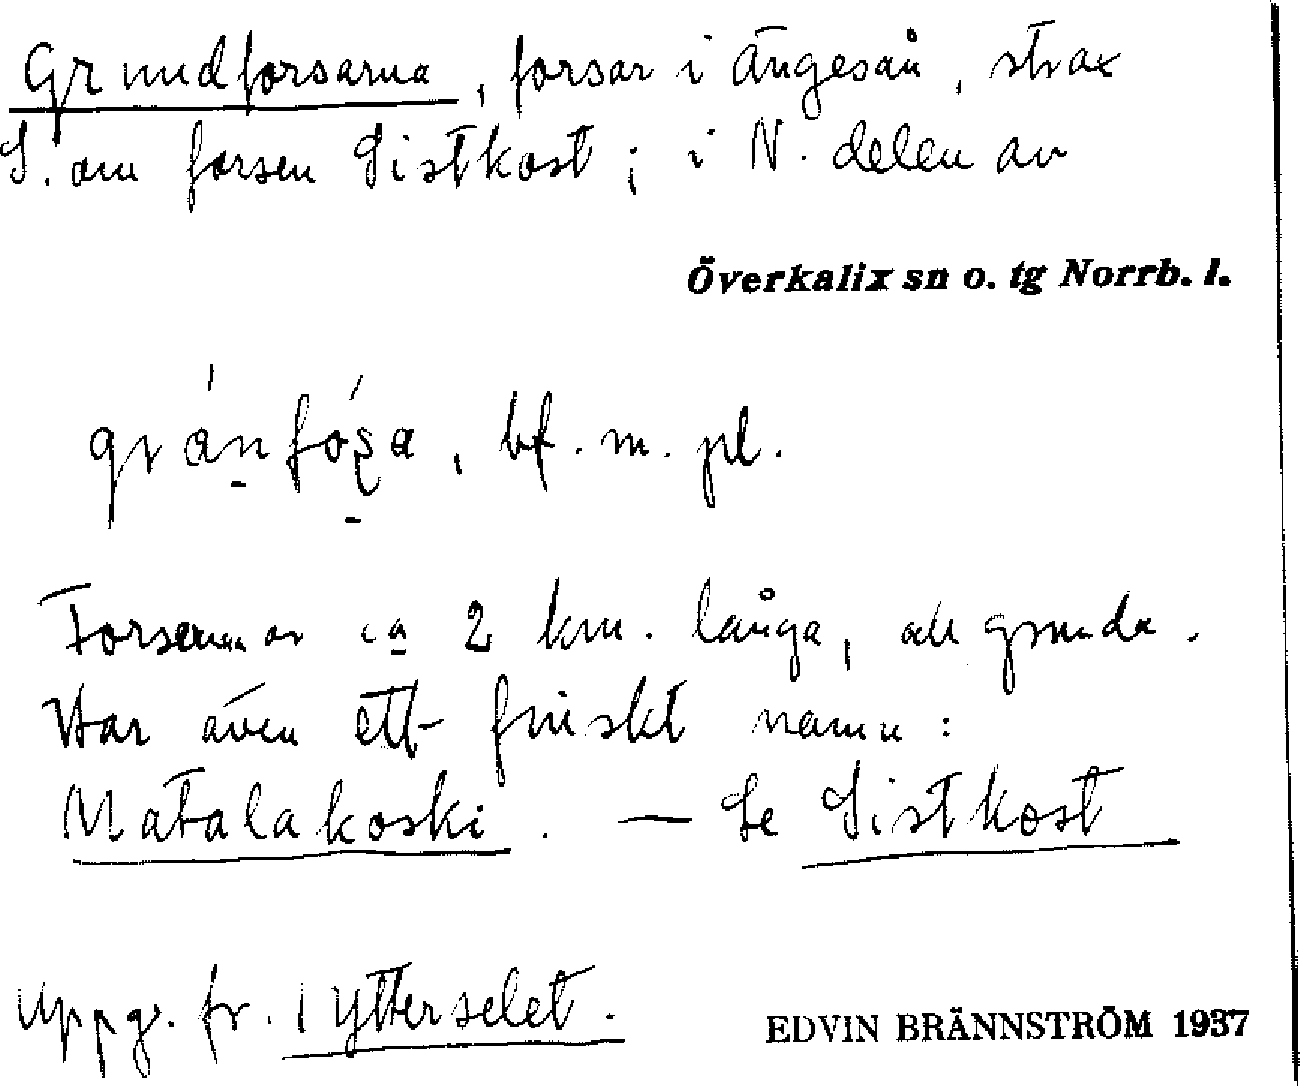 Grundforsarna, forsar i Ängesån, strax
S. om forsen Sistkost; i N. delen av
Överkalix sn o. tg Norrb. l.
gránfóṣa, bf. m. pl.
Forsarna ca 2 km. långa, grunda.
Har även ett finskt namn:
Matalakoski. — Se Sistkost
Uppg. fr. Ytterselet.
EDVIN BRÄNNSTRÖM 1937